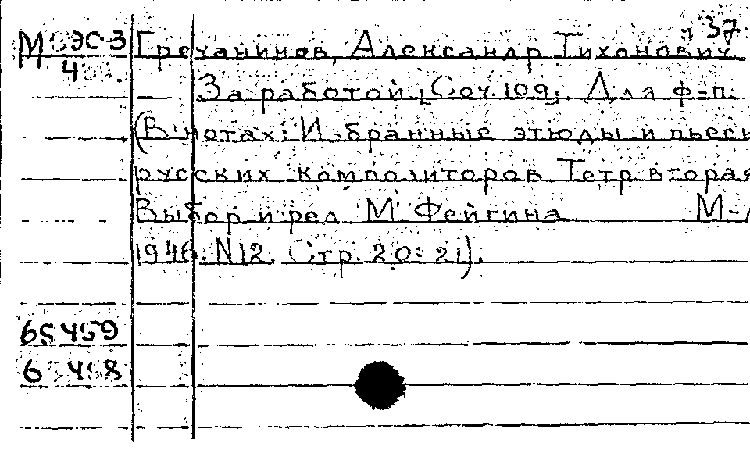 37
Гречанинов, Александр Тихонович
За работой. [Соч. 109]. Для ф-п.
(В нотах: Избранные этюды и пьесы
русских композиторов Тетр вторая
Выбор и ред М Фейгина М-Л
1946. N12. Стр. 20-21).
65459
65458